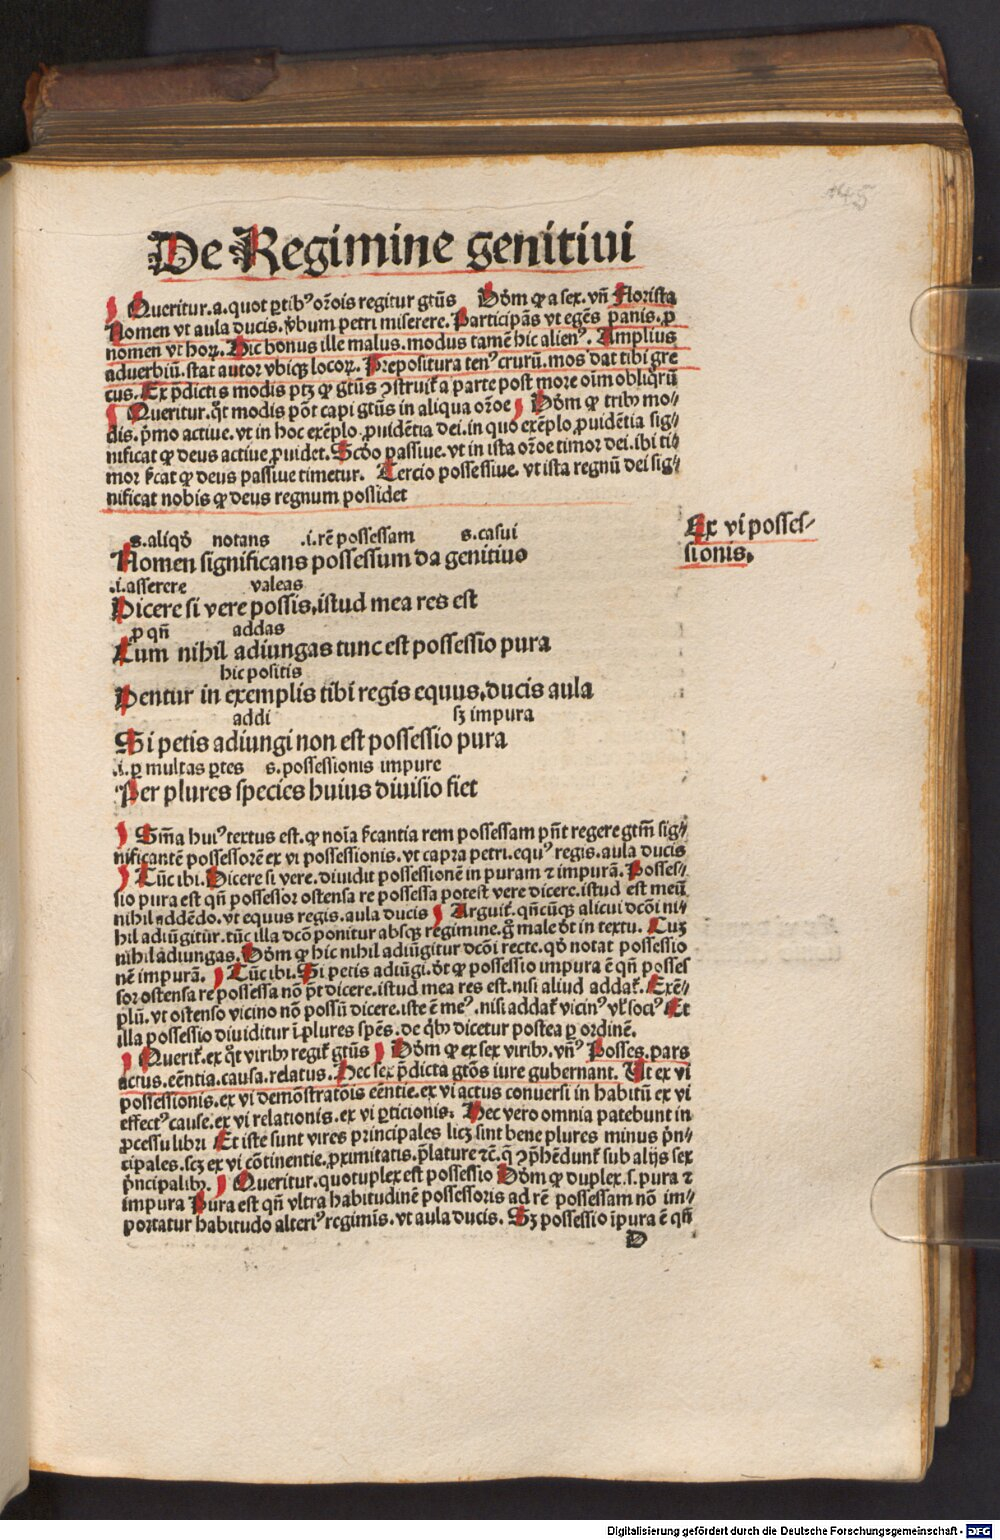 45
De Regimine genitiui
Queritur.a.quot ꝑtibꝰ or̄ois regitur gtūs Dōm ꝙ a sex. vn̄ Florista
Nomen vt aula ducis. v̓bum petri miserere. Participās vt egēs panis. ꝓ
nomen vt hoꝝ. Hic bonus ille malus. modus tamē hic alienꝰ. Amplius
adverbiū. stat autor vbiqꝫ locoꝝ. Prepositura tenꝰ crurū. mos dat tibi gre
cus. Ex p̄dictis modis ptꝫ ꝙ gtūs ꝯstruit̄ a parte post more oīm obliq̄rū
Queritur. qͦt modis pōt capi gtūs in aliqua or̄oe Dōm ꝙ tribꝰ mo⸗
dis. p̄mo actiue. vt in hoc exēplo ꝓuidētia dei. in quo exēplo ꝓuidētia sig⸗
nificat ꝙ deus actiue ꝓuidet. Scd̓o passiue. vt in ista or̄oe timor dei. ibi ti⸗
mor s̄cat ꝙ deus passiue timetur. Tercio possessiue. vt ista regnū dei sig⸗
nificat nobis ꝙ deus regnum possidet
s. aliqd̓ notans .i. rē possessam s. casui
Nomen significans possessum da genitiuo
Ex vi posses⸗
sionis.
.i. asserere valeas
Dicere si vere possis, istud mea res est
ꝓ qn̄ addas
Cum nihil adiungas tunc est possessio pura
hic positis
Dentur in exemplis tibi regis equus, ducis aula
addi sꝫ impura
Si petis adiungi non est possessio pura
.i. ꝑ multas ꝑtes s. possessionis impure
Per plures species huius diuisio fiet
Sm̄a huiꝰ textus est. ꝙ noīa s̄cantia rem possessam pn̄t regere gtm̄ sig⸗
nificantē possessorē ex vi possessionis. vt capra petri. equꝰ regis. aula ducis
Tūc ibi. Dicere si vere. diuidit possessionē in puram ⁊ impurā. Posses⸗
sio pura est qn̄ possessor ostensa re possessa potest vere dicere. istud est meū
nihil addēdo. vt equus regis. aula ducis Arguit̄. qn̄cūqꝫ alicui dcōi ni⸗
hil adiūgitur. tūc illa dcō ponitur absqꝫ regimine. gͦ male d̓t in textu. Cuꝫ
nihil adiungas. Dōm ꝙ hic nihil adiūgitur dcōi recte. qd̓ notat possessio
nē impurā. Tūc ibi. Si petis adiūgi. d̓t ꝙ possessio impura ē qn̄ posses
sor ostensa re possessa nō pt̄ dicere. istud mea res est. nisi aliud addat̄. Exē⸗
plū. vt ostenso vicino nō possū dicere. iste ē meꝰ. nisi addat̄ vicinꝰ vl̓ sociꝰ Et
illa possessio diuiditur ī plures spēs. de qͥbꝰ dicetur postea ꝑ ordinē.
Querit̄. ex qͦt viribꝰ regit̄ gtūs Dōm ꝙ ex sex viribꝰ. vn̄ꝰ Posses. pars
actus. eēntia. causa. relatus. Hec sex p̄dicta gtōs iure gubernant. Ut ex vi
possessionis. ex vi demōstratōis eēntie. ex vi actus conuersi in habitū ex vi
effectꝰ cause. ex vi relationis. ex vi ꝑticionis. Hec vero omnia patebunt in
ꝓcessu libri Et iste sunt vires principales licꝫ sint bene plures minus p̄n⸗
cipales. scꝫ ex vi cōtinentie. ꝓximitatis. p̄lature ⁊c̄. q̄ ꝯp̄hēdunt̄ sub alijs sex
p̄ncipalibꝰ. Queritur. quotuplex est possessio Dōm ꝙ duplex. s. pura ⁊
impura Pura est qn̄ vltra habitudinē possessoris ad rē possessam nō im⸗
portatur habitudo alteriꝰ regimīs. vt aula ducis. Sꝫ possessio īpura ē qn̄
D
Digitalisierung gefördert durch die Deutsche Forschungsgemeinschaft - DFG